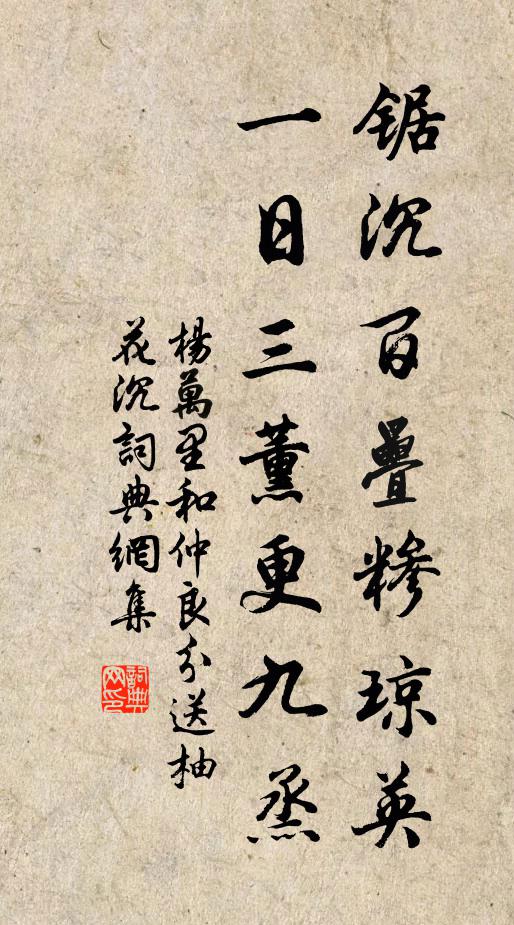 锯沉百疊糝琼英
一日三薰更九烝
楊萬里和仲良分送柚
花沉詞典網集
詞典
网印